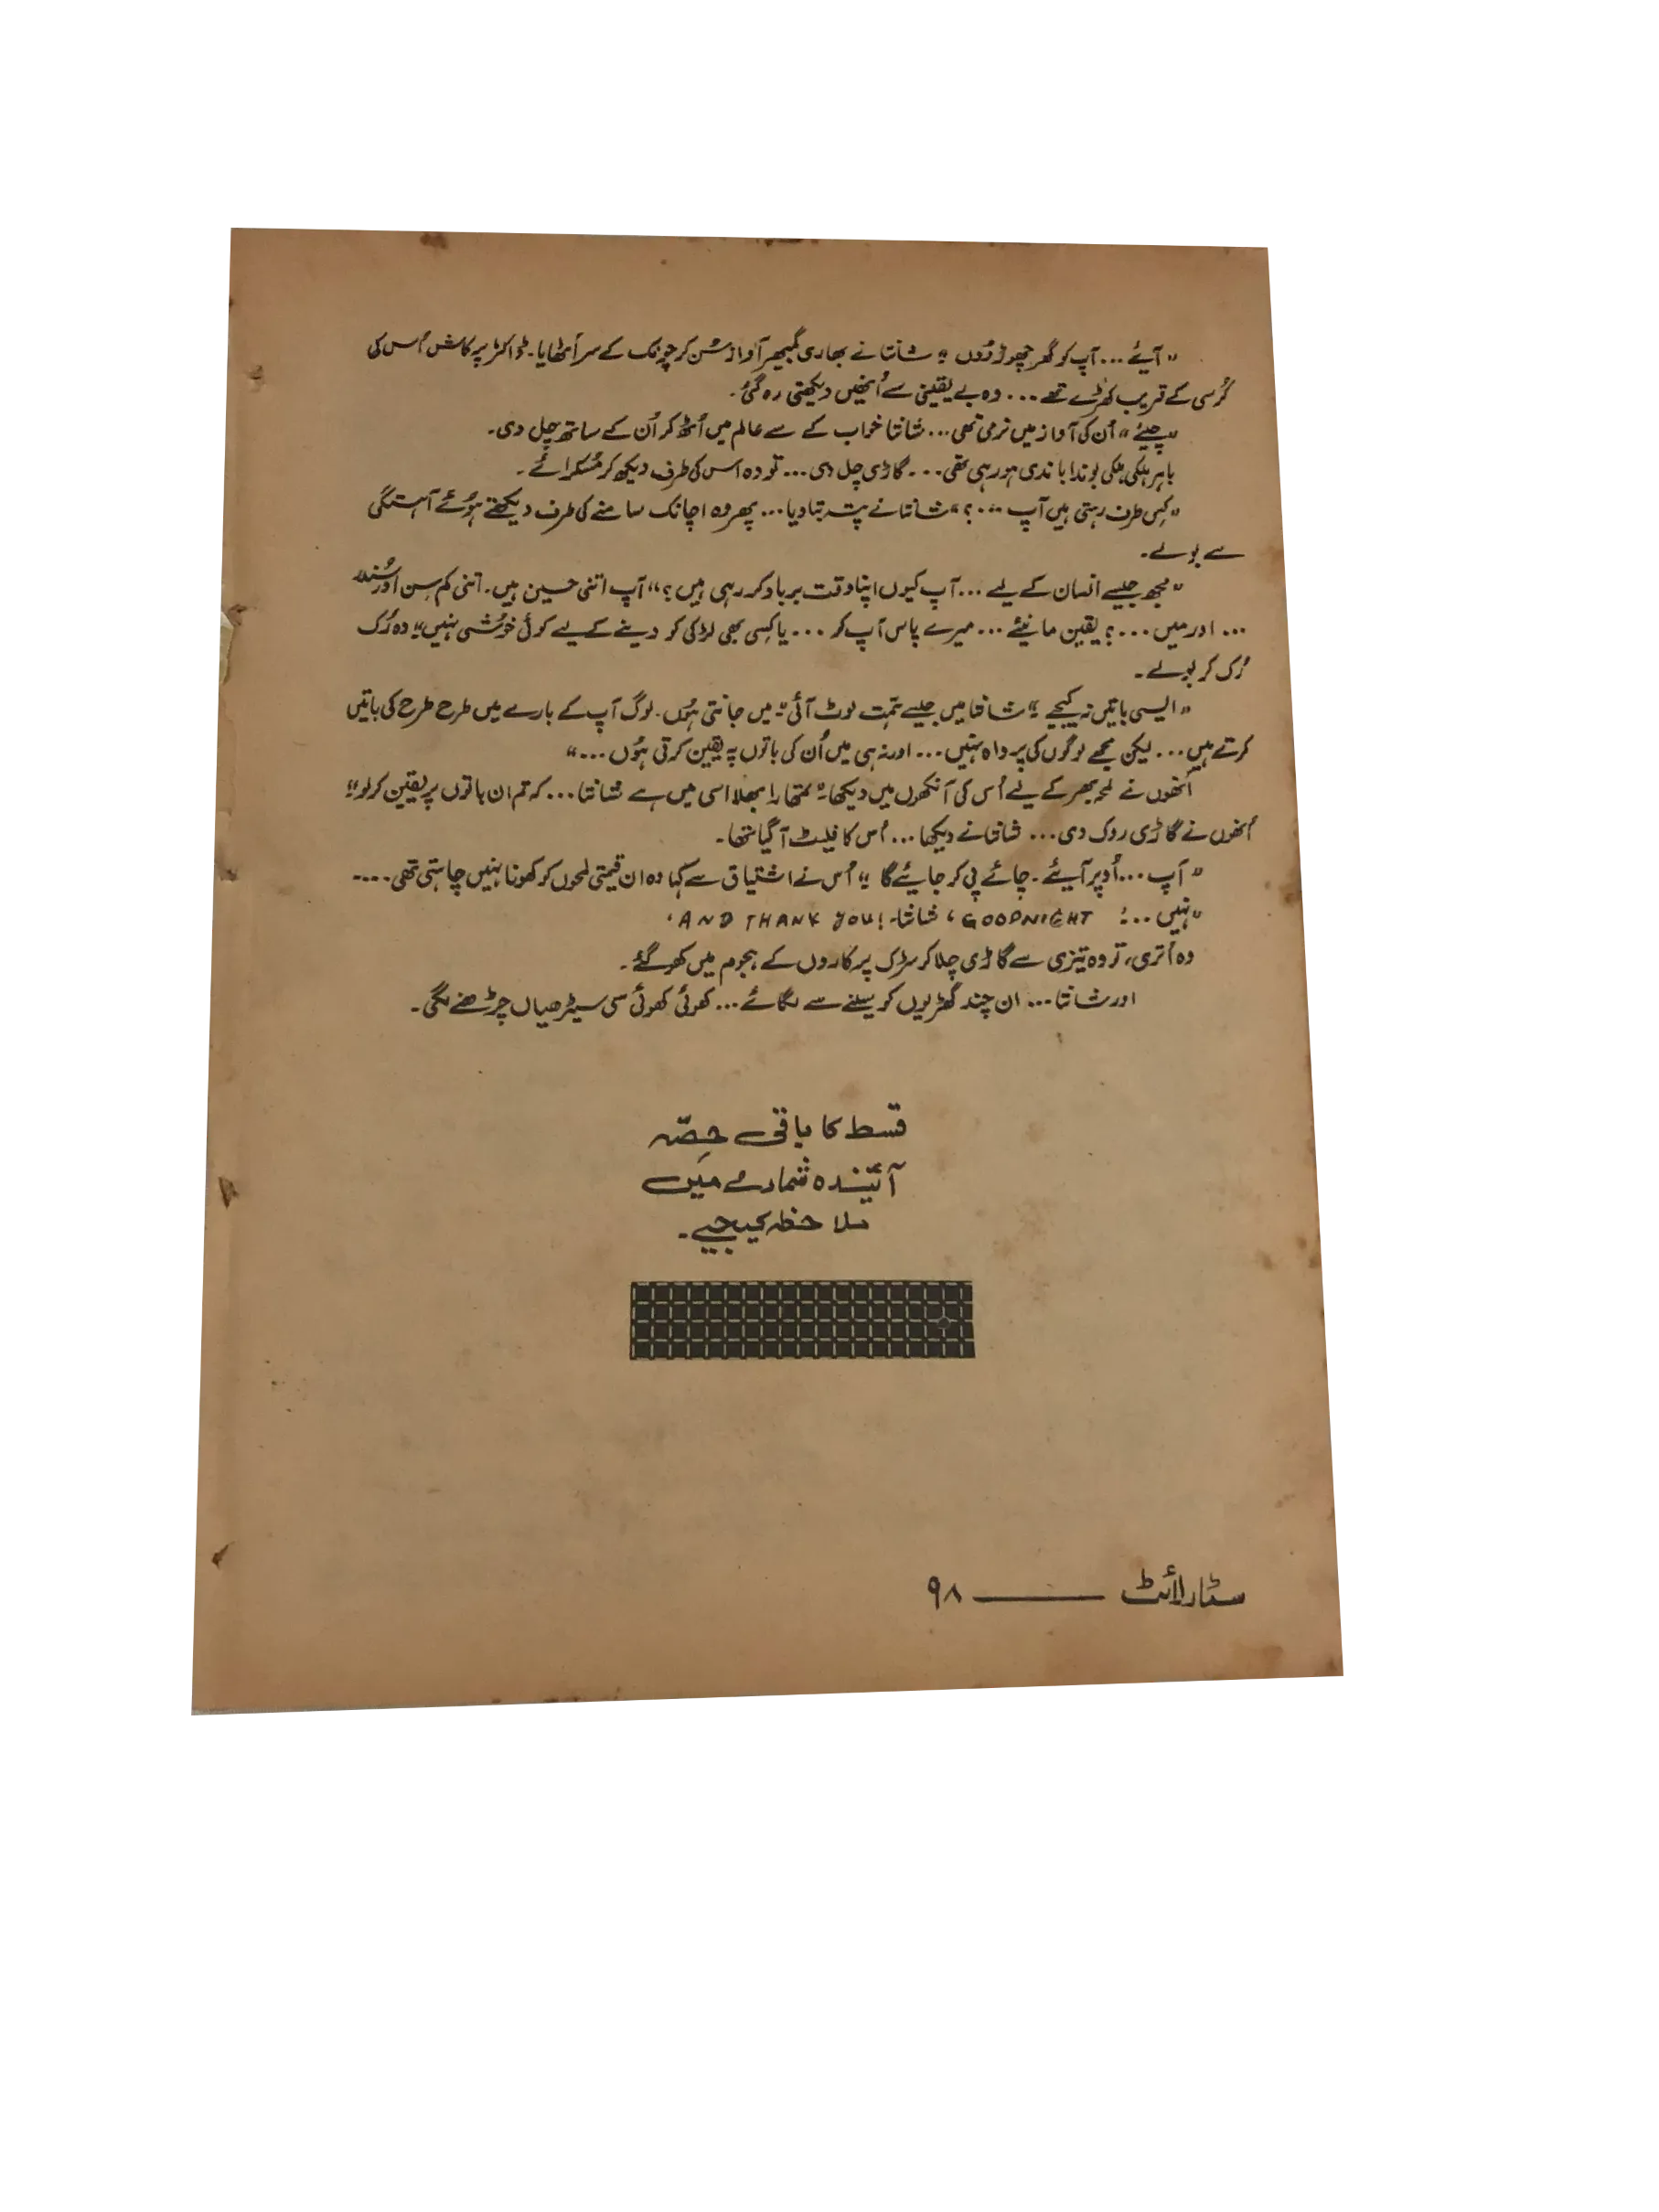 "آیئے... آپ کو گھر چھوڑ دُوں" شانتا نے بھاری گمبھیر آواز سُن کر چونک کے سر اُٹھایا۔ ڈاکٹر پرکاش اُس کی
کُرسی کے قریب کھڑے تھے... وہ بے یقینی سے اُنھیں دیکھتی رہ گئی۔
"چلیئے" اُن کی آواز میں نرمی تھی... شانتا خواب کے سے عالم میں اُٹھ کر اُن کے ساتھ چل دی۔
باہر ہلکی ہلکی بوندا باندی ہو رہی تھی... گاڑی چل دی... تو وہ اس کی طرف دیکھ کر مُسکرائے۔
"کِس طرف رہتی ہیں آپ...؟" شانتا نے پتہ بتا دیا... پھر وہ اچانک سامنے کی طرف دیکھتے ہوُئے آہستگی
سے بولے۔
"مجھ جیسے انسان کے لیے... آپ کیوں اپنا وقت برباد کر رہی ہیں؟" آپ اتنی حسین ہیں۔ اتنی کم سِن اور
... اور میں...؟ یقین مانیئے... میرے پاس آپ کو... یا کِسی بھی لڑکی کو دینے کے لیے کوئی خوشی نہیں" وہ رُک
رُک کر بولے۔
"ایسی باتیں نہ کیجیے" شانتا میں جیسے ہمّت لوٹ آئی" میں جانتی ہُوں۔ لوگ آپ کے بارے میں طرح طرح کی باتیں
کرتے ہیں... لیکن مجھے لوگوں کی پرواہ نہیں... اور نہ ہی میں اُن کی باتوں پہ یقین کرتی ہوُں..."
اُنھوں نے لمحہ بھر کے لیے اُس کی آنکھوں میں دیکھا" تمھارا بھلا اسی میں ہے شانتا... کہ تم ان باتوں پر یقین کر لو"
اُنھوں نے گاڑی روک دی... شانتا نے دیکھا... اُس کا فلیٹ آگیا تھا۔
"آپ... اُوپر آیئے۔ چائے پی کر جایئے گا" اُس نے اشتیاق سے کہا وہ ان قیمتی لمحوں کو کھونا نہیں چاہتی تھی....
"نہیں...! GOODNIGHT، شانتا۔ AND THANK YOU!'
وہ اُتری، تو وہ تیزی سے گاڑی چلا کر سڑک پر کاروں کے ہجوم میں کھو گئے۔
اور شانتا... ان چند گھڑیوں کو سینے سے لگائے... کھوئی کھوئی سی سیڑھیاں چڑھنے لگی۔
قسط کا باقی حِصّہ
آئیندہ شمارے میں
ملاحظہ کیجیے۔
سٹار لائٹ ــــــ ۹۸